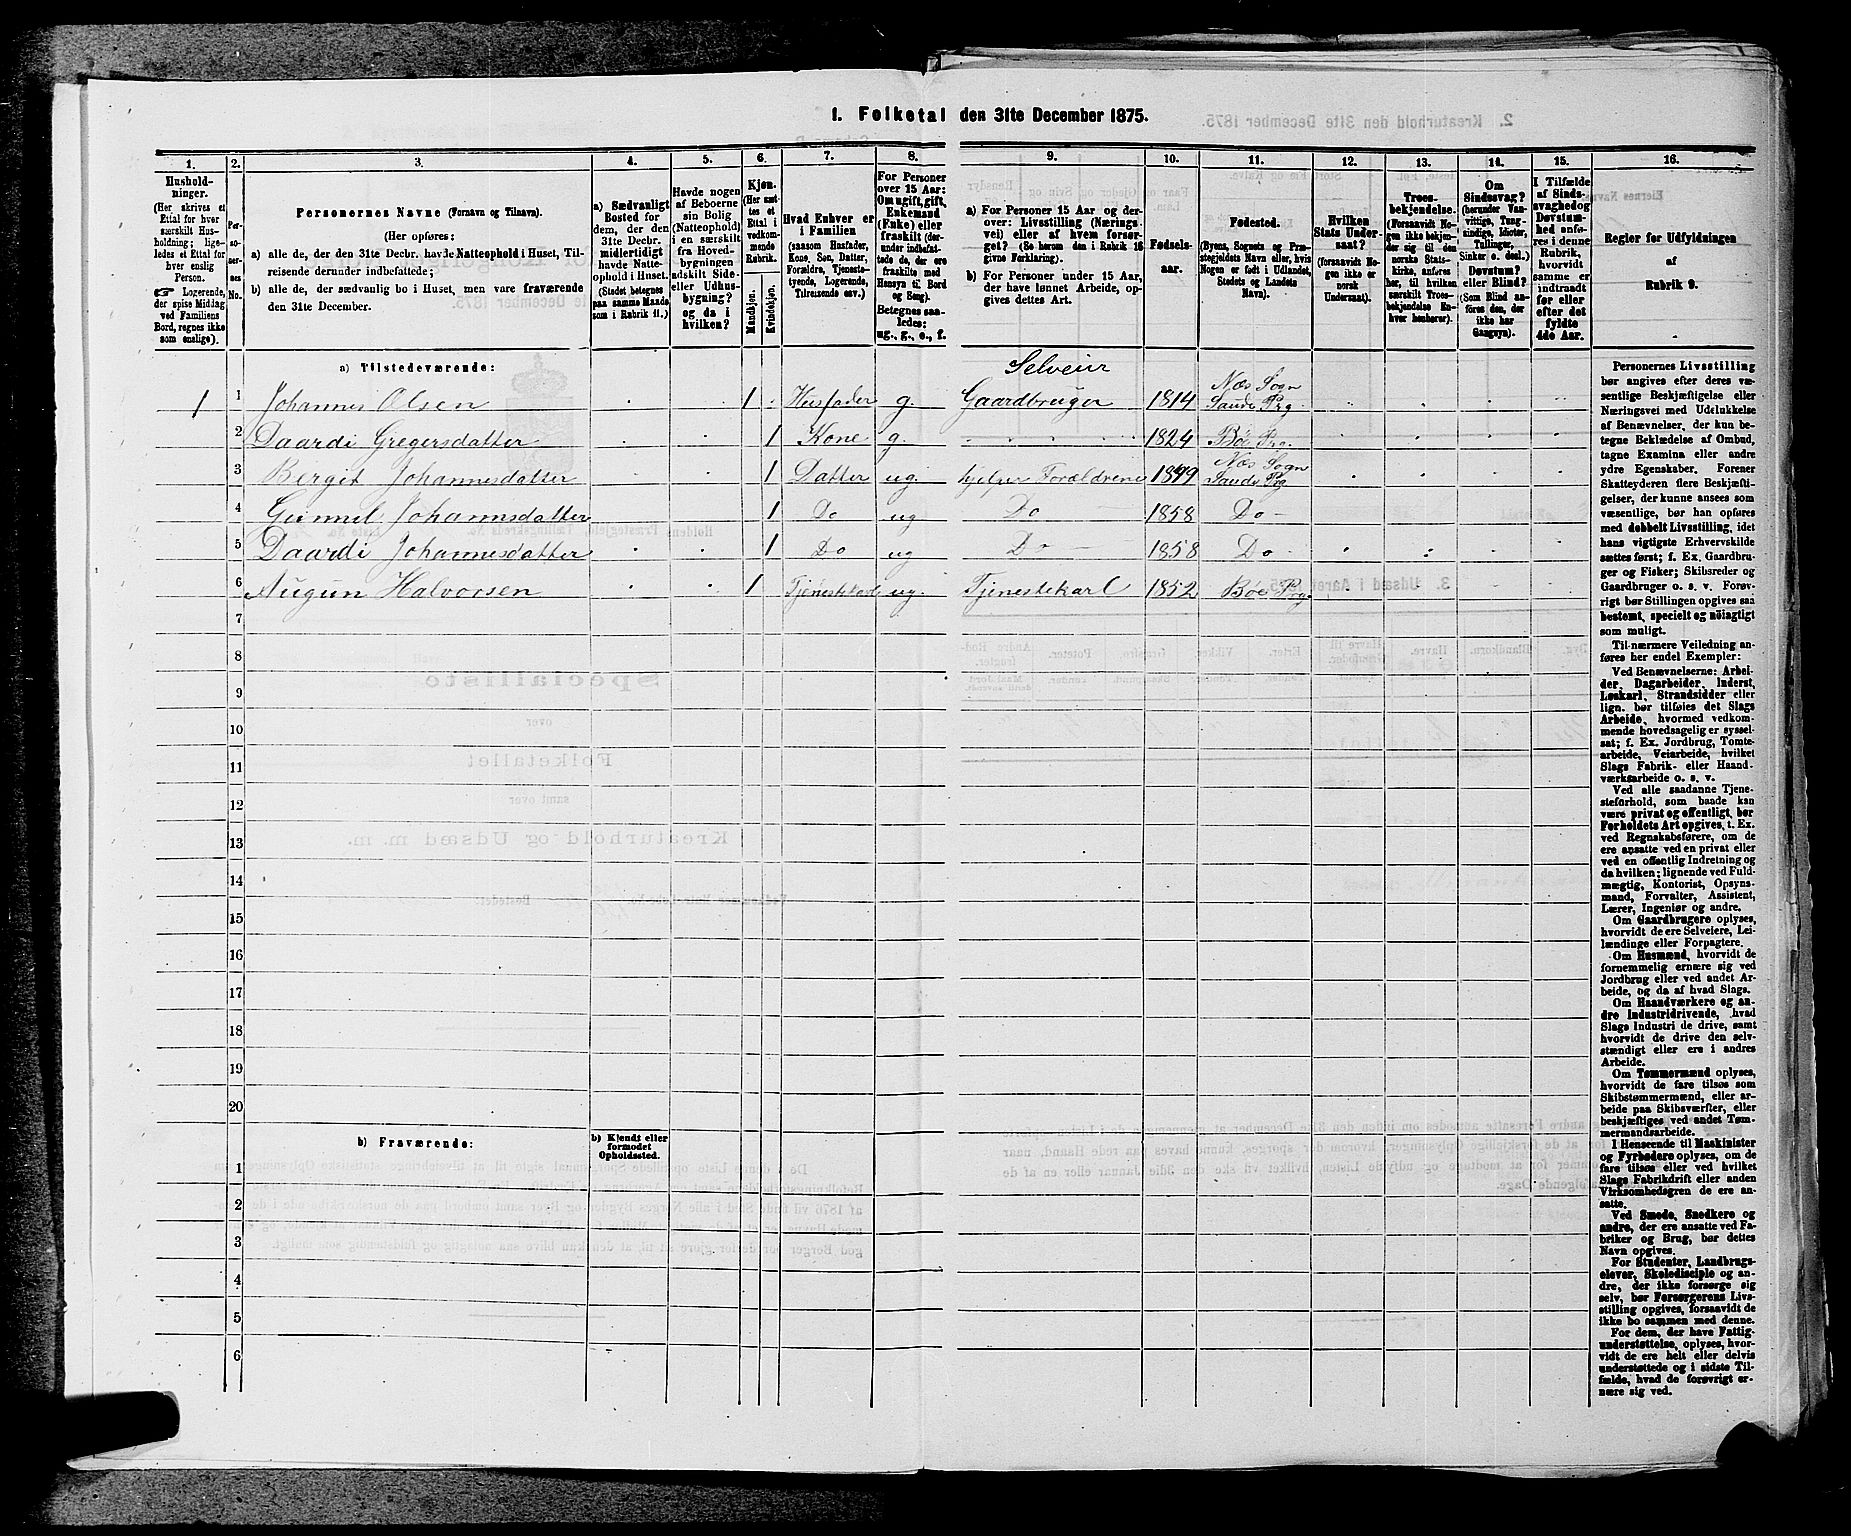 1. Folketal den 31te December 1875.
1.
2.
3.
4.
5.
6.
7.
8.
9.
10.
11.
12.
13.
14.
15.
16.
Hushold-
ninger.
(Her skrives et
Ettal for hver
særskilt Hus-
holdning; lige-
ledes et Ettal for
hver enslig
Person.
☞ Logerende,
der spise Middag
ved Familiens
Bord, regnes ikke
som enslige).
Per-
so-
ner-
nes
No.
Personernes Navne (Fornavn og Tilnavn).
(Her opføres:
a) alle de, der den 31te Decbr. havde Natteophold i Huset, Til-
reisende derunder indbefattede;
b) alle de, der sædvanlig bo i Huset, men vare fraværende
den 31te December.
a) Sædvanligt
Bosted for
dem, der den
31te Decbr.
midlertidigt
havde Natte-
ophold i Huset.
(Stedet betegnes
paa samme Maade
som i Rubrik 11.)
Havde nogen
af Beboerne
sin Bolig
(Natteophold)
i en særskilt
fra Hoved-
bygningen
adskilt Side-
eller Udhus-
bygning?
og da i
hvilken?
Kjøn.
(Her sæt-
tes et
Ettal i
vedkom-
mende
Rubrik.
Mandkjøn.
Kvindekjøn.
Hvad Enhver er
i Familien
(saasom Husfader,
Kone, Søn, Datter,
Forældre, Tjeneste-
tyende, Logerende,
Tilreisende osv.)
For Personer
over 15 Aar:
Om ugift, gift,
Enkemand
(Enke) eller
fraskilt (der-
under indbefat-
tede de, der ere
fraskilte med
Hensyn til Bord
og Seng).
Betegnes saa-
ledes:
ug., g., e., f.
a) For Personer 15 Aar og der-
over: Livsstilling (Nærings-
vei) eller af hvem forsør-
get? (Se herom den i Rubrik 16
givne Forklaring).
b) For Personer under 15 Aar,
der have lønnet Arbeide, op-
gives dettes Art.
Fødsels-
aar.
Fødested.
(Byens, Sognets og Præ-
stegjeldets Navn eller, hvis
Nogen er født i Udlandet,
Stedets og Landets
Navn).
Hvilken
Stats Under-
saat?
(forsaavidt No-
gen ikke er
norsk
Undersaat).
Troes-
bekjendelse.
(Forsaavidt No-
gen ikke bekjen-
der sig til den
norske Stats-
kirke, anføres
her, til hvilken
særskilt Troes-
bekjendelse En-
hver henhører).
Om
Sindssvag?
(herunder Van-
vittige, Tung-
sindige, Idioter,
Tullinger,
Sinker o. desl.)
Døvstum?
eller Blind?
(Som Blind an-
føres den, der
ikke har
Gangsyn).
I Tilfælde
af Sinds-
svaghed og
Døvstum-
hed anfø-
res i denne
Rubrik,
hvorvidt
samme er
indtraadt
før eller
efter det
fyldte
4de Aar.
Regler for Udfyldningen
af
Rubrik 9.
a) Tilstedeværende:
Selveier
1 1 Johannes Olsen 1 Husfader g. Gaardbruger 1814 Næs Sogn Saude Prg.
2 Daardi Gregersdatter 1 Kone g. 1824 Bøe Prg.
3 Bergit Johannesdatter 1 Datter ug. hjelper Forældrene 1849 Næs Sogn Saude Prg
4 Gunnil Johannsdatter 1 Do ug Do 1858 Do
5 Daardi Johannesdatter 1 Do ug Do 1858 Do
6 Augun Halvorsen 1 ug. Tjenestekarl 1852 Bøe Prg.
7
8
9
10
11
12
13
14
15
16
17
18
19
20
b) Fraværende:
b) Kjendt eller
formodet
Opholdssted.
1
2
3
4
5
6
Personernes Livsstilling
bør angives efter deres væ-
sentlige Beskjæftigelse eller
Næringsvei med Udelukkelse
af Benævnelser, der kun be-
tegne Beklædelse af Ombud,
tagne Examina eller andre
ydre Egenskaber. Forener
Skatteyderen flere Beskjæfti-
gelser, der kunne ansees som
væsentlige, bør han opføres
med dobbelt Livsstilling, idet
hans vigtigste Erhvervskilde
sættes først; f. Ex. Gaardbru-
ger og Fisker; Skibsreder og
Gaardbruger o. s. v. Forøv-
rigt bør Stillingen opgives saa
bestemt, specielt og nøiagtigt
som muligt.
Til nærmere Veiledning an-
føres her endel Exempler:
Ved Benævnelserne: Arbei-
der, Dagarbeider, Inderst,
Løskarl, Strandsidder eller
lign. bør tilføies det Slags
Arbeide, hvormed vedkom-
mende hovedsagelig er syssel-
sat; f. Ex. Jordbrug, Tomte-
arbeide, Veiarbeide, hvilket
Slags Fabrik- eller Haand-
værksarbeide o. s. v.
Ved alle saadanne Tjene-
steforhold, som baade kan
være privat og offentligt, bør
Forholdets Art opgives, t. Ex.
ved Regnskabsførere, om de
ere ansatte ved en privat eller
ved en offentlig Indretning og
da hvilken; lignende ved Fuld-
mægtig, Kontorist, Opsyns-
mand, Forvalter, Assistent,
Lærer, Ingeniør og andre.
Om Gaardbrugere oplyses,
hvorvidt de ere Selveiere, Lei-
lændinge eller Forpagtere.
Om Husmænd, hvorvidt de
fornemmelig ernære sig ved
Jordbrug eller ved andet Ar-
beide, og da af hvad Slags.
Om Haandværkere og an-
dre Industridrivende, hvad
Slags Industri de drive, samt
hvorvidt de drive den selv-
stændigt eller ere i andres
Arbeide.
Om Tømmermænd oplyses,
hvorvidt de fare tilsøs som
Skibstømmermænd, eller ar-
beide paa Skibsværfter, eller
beskjæftiges ved andet Tøm-
mermandsarbeide.
I Henseende til Maskinister
og Fyrbødere oplyses, om de
fare tilsøs eller ved hvilket
Slags Fabrikdrift eller anden
Virksomhedsgren de ere an-
satte.
Ved Smede, Snedkere og
andre, der ere ansatte ved Fa-
briker og Brug, bør dettes
Navn opgives.
For Studenter, Landbrugs-
elever, Skoledisciple og an-
dre, der ikke forsørge sig
selv, bør Forsørgerens Livs-
stilling opgives, forsaavidt de
ikke bo sammen med denne.
For dem, der have Fattig-
understøttelse, oplyses, hvor-
vidt de ere helt eller delvis
understøttede og i sidste Til-
fælde, hvad de forøvrigt er-
nære sig ved.